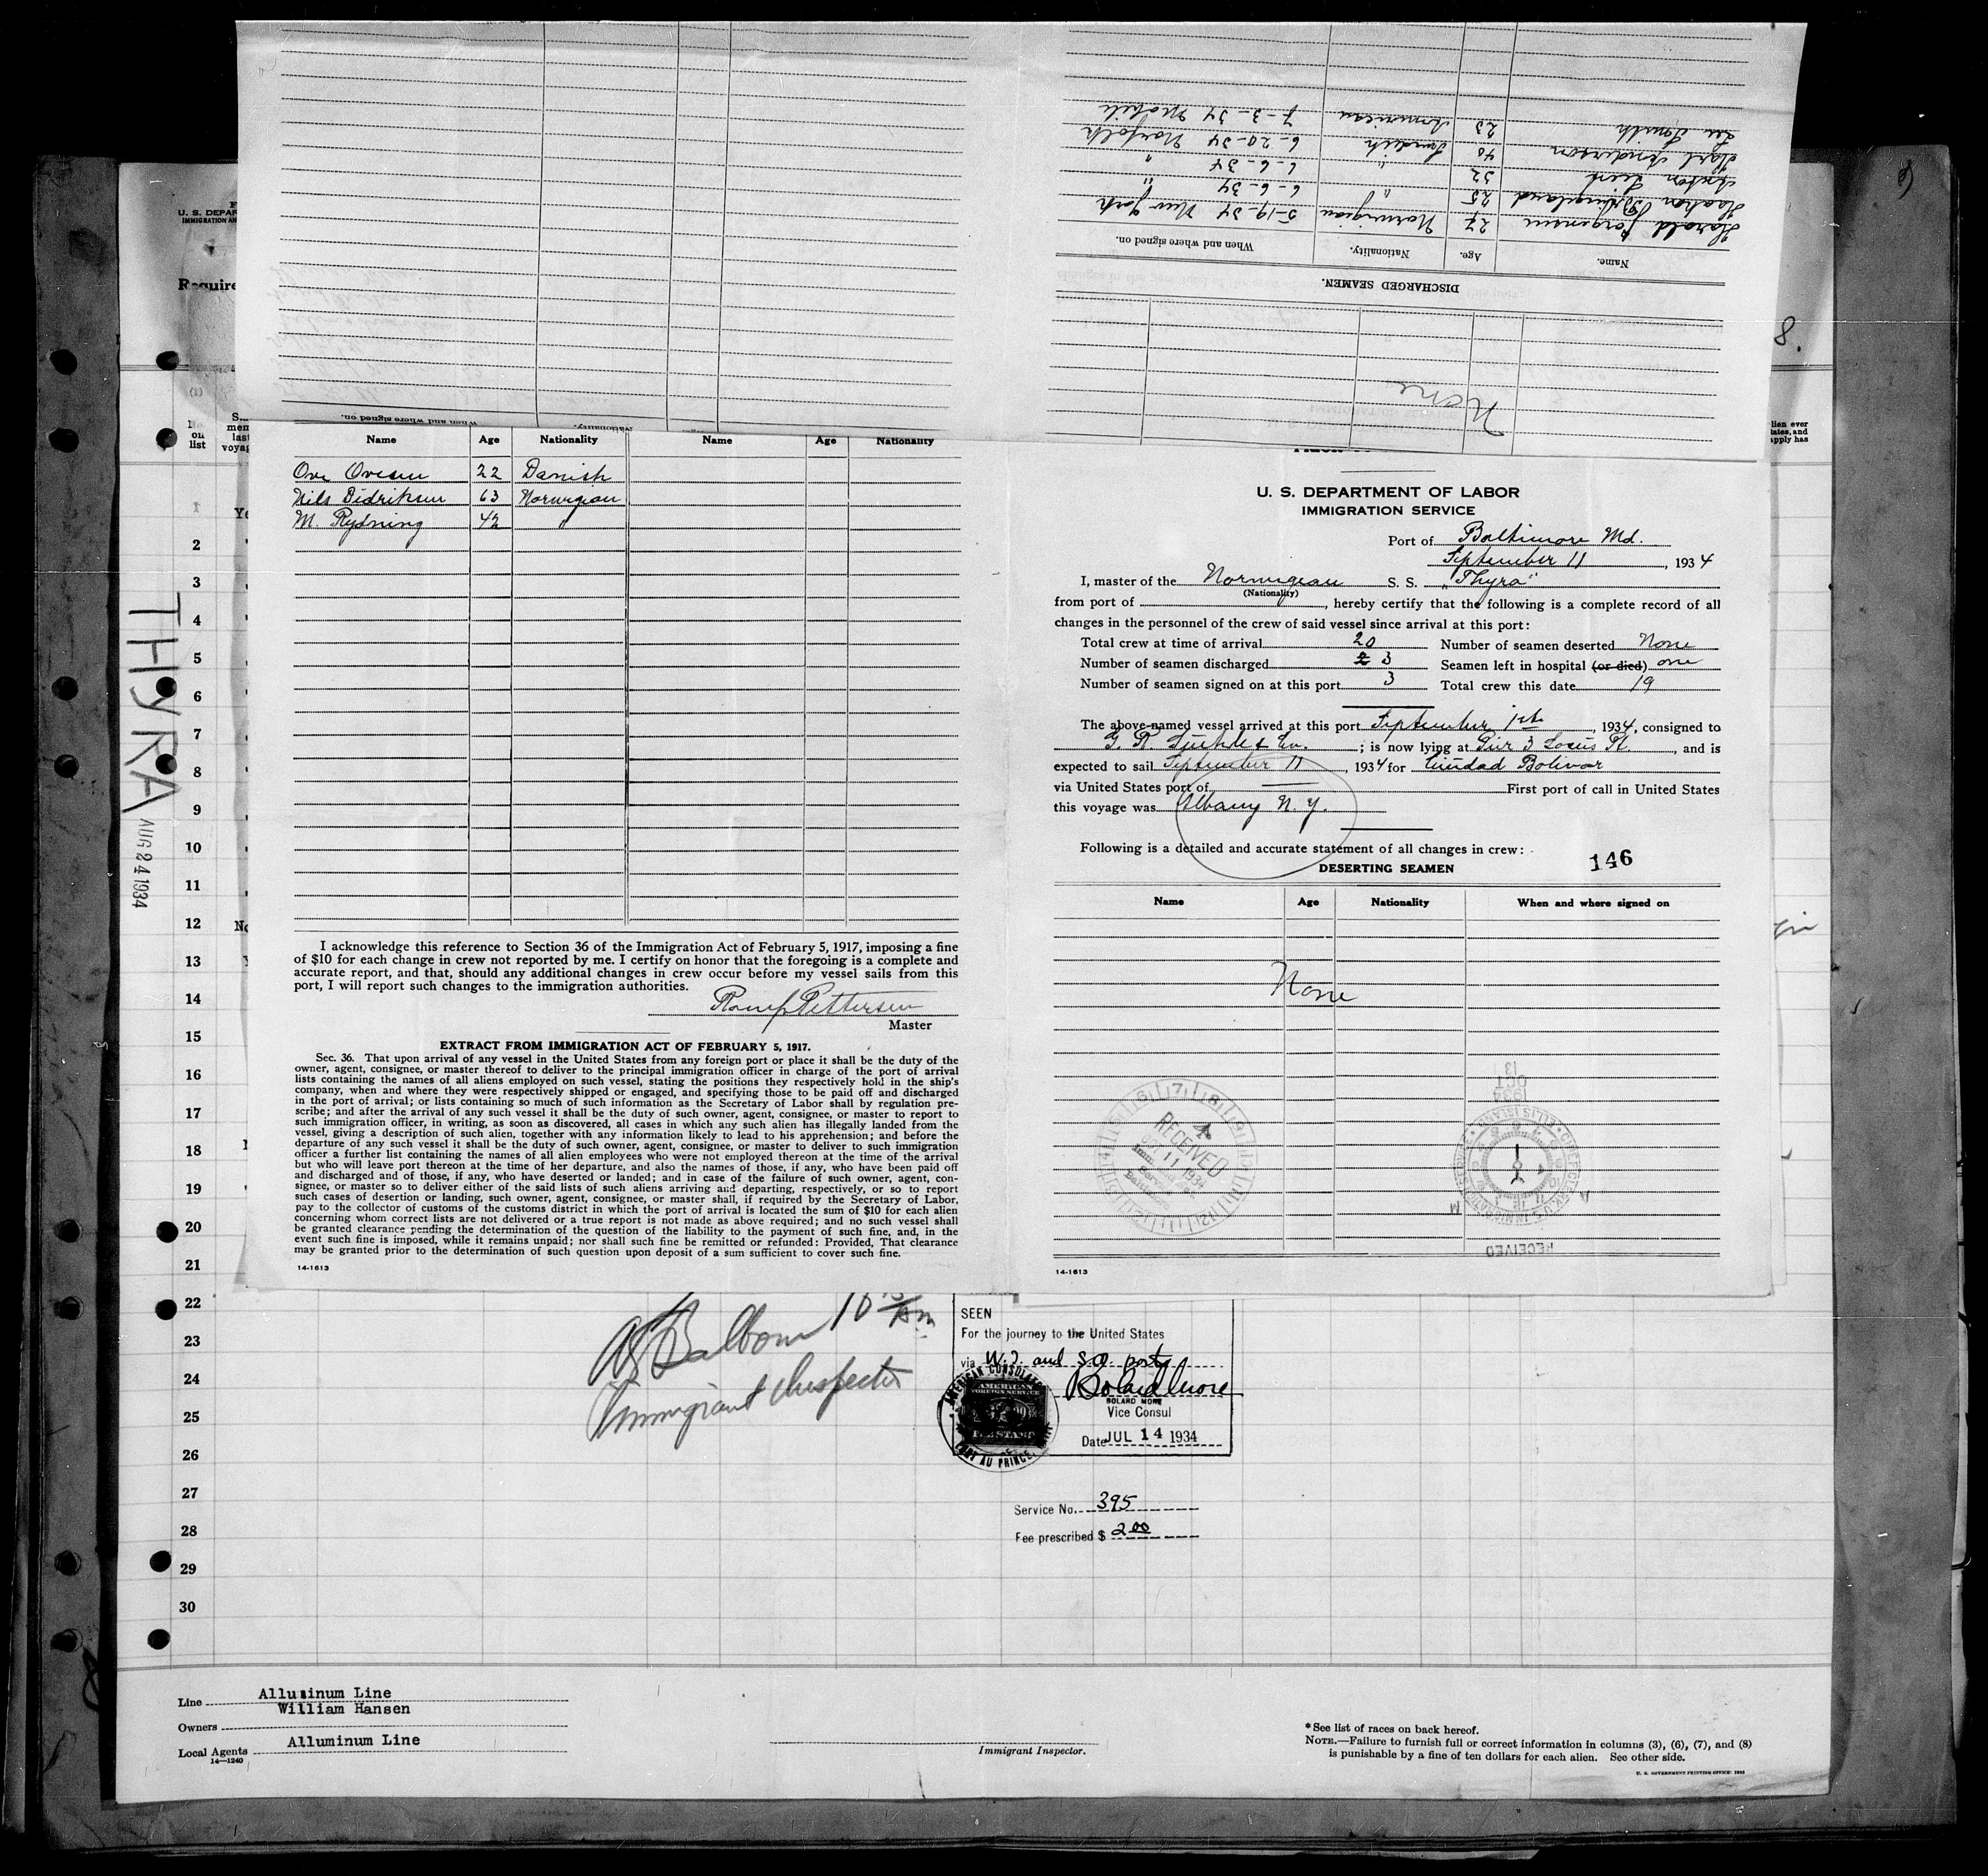 7-3-34 Mobile
Lee Smith 23 American
Karl Anderson 40 Swedish 6-20-34 Norfolk
Anton 32 " 6-6-34 "
Haakon 25 " 6-6-34 "
Harald Jorgensen 27 Norwegian 5-19-34 New York
Name. Age. Nationality. When and where signed on.
DISCHARGED SEAMEN.
None
When and where signed on. Nationality.
U. S. DEPAR
IMMIGRATION AN
Require
8.
(1)
No
on
list
S
mem
last
voyag
lien ever
tates, and
apply has
Name Age Nationality Name Age Nationality
Ove Ovesen 22 Danish
Nils Didriksen 63 Norwegian
M. Rydning 42 "
I acknowledge this reference to Section 36 of the Immigration Act of February 5, 1917, imposing a fine
of $10 for each change in crew not reported by me. I certify on honor that the foregoing is a complete and
accurate report, and that, should any additional changes in crew occur before my vessel sails from this
port, I will report such changes to the immigration authorities.
Pettersen
Master
EXTRACT FROM IMMIGRATION ACT OF FEBRUARY 5, 1917.
Sec. 36. That upon arrival of any vessel in the United States from any foreign port or place it shall be the duty of the
owner, agent, consignee, or master thereof to deliver to the principal immigration officer in charge of the port of arrival
lists containing the names of all aliens employed on such vessel, stating the positions they respectively hold in the ship's
company, when and where they were respectively shipped or engaged, and specifying those to be paid off and discharged
in the port of arrival; or lists containing so much of such information as the Secretary of Labor shall by regulation pre-
scribe; and after the arrival of any such vessel it shall be the duty of such owner, agent, consignee, or master to report to
such immigration officer, in writing, as soon as discovered, all cases in which any such alien has illegally landed from the
vessel, giving a description of such alien, together with any information likely to lead to his apprehension; and before the
departure of any such vessel it shall be the duty of such owner, agent, consignee, or master to deliver to such immigration
officer a further list containing the names of all alien employees who were not employed thereon at the time of the arrival
but who will leave port thereon at the time of her departure, and also the names of those, if any, who have been paid off
and discharged and of those, if any, who have deserted or landed; and in case of the failure of such owner, agent, con-
signee, or master so to deliver either of the said lists of such aliens arriving and departing, respectively, or so to report
such cases of desertion or landing, such owner, agent, consignee, or master shall, if required by the Secretary of Labor,
pay to the collector of customs of the customs district in which the port of arrival is located the sum of $10 for each alien
concerning whom correct lists are not delivered or a true report is not made as above required; and no such vessel shall
be granted clearance pending the determination of the question of the liability to the payment of such fine, and, in the
event such fine is imposed, while it remains unpaid; nor shall such fine be remitted or refunded: Provided, That clearance
may be granted prior to the determination of such question upon deposit of a sum sufficient to cover such fine.
14-1613
U. S. DEPARTMENT OF LABOR
IMMIGRATION SERVICE
Port of Baltimore Md.
September 11, 1934
I, master of the Norwegian S. S. "Thyra"
(Nationality)
from port of , hereby certify that the following is a complete record of all
changes in the personnel of the crew of said vessel since arrival at this port:
Total crew at time of arrival 20 Number of seamen deserted None
Number of seamen discharged 3 Seamen left in hospital (or died) one
Number of seamen signed on at this port 3 Total crew this date 19
The above-named vessel arrived at this port September 1st, 1934, consigned to
; is now lying at Pier 3 Locus Pt , and is
expected to sail September 11, 1934 for Ciudad Bolivar
via United States port of First port of call in United States
this voyage was Albany N. Y.
Following is a detailed and accurate statement of all changes in crew:
146
DESERTING SEAMEN
Name Age Nationality When and where signed on
None
RECEIVED
11 1934
Baltimore
OCT 13
1934
ELLIS ISLAND
RECEIVED
14-1613
THYRA
AUG 24 1934
1
2
3
4
5
6
7
8
9
10
11
12
13
14
15
16
17
18
19
20
21
22
23
24
25
26
27
28
29
30
Balbom 10
Immigrant Inspector
SEEN
For the journey to the United States
via W.I. and S.A. ports
Bolard More
BOLARD MORE
Vice Consul
Date JUL 14 1934
AMERICAN CONSULATE
AMERICAN
FOREIGN SERVICE
FEE STAMP
PORT AU PRINCE
Service No. 395
Fee prescribed $ 2 00
Line Alluminum Line
William Hansen
Owners
Local Agents Alluminum Line
14-1240
Immigrant Inspector.
* See list of races on back hereof.
NOTE.—Failure to furnish full or correct information in columns (3), (6), (7), and (8)
is punishable by a fine of ten dollars for each alien. See other side.
U. S. GOVERNMENT PRINTING OFFICE